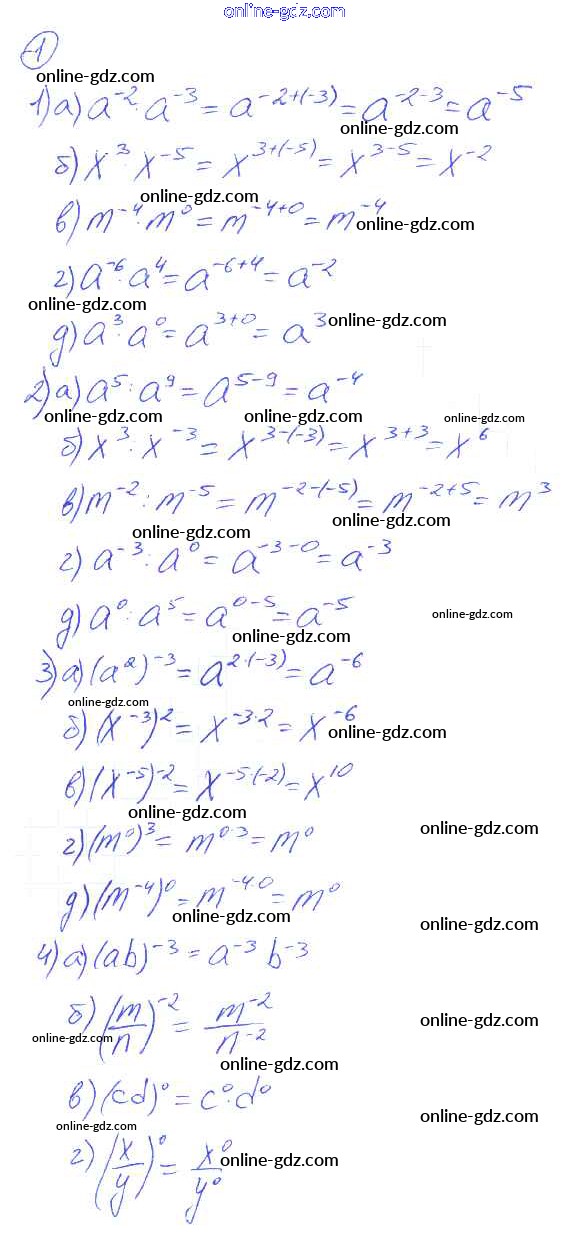 online-gdz.com
1
online-gdz.com
1) а) a⁻² · a⁻³ = a⁻²⁺⁽⁻³⁾ = a⁻²⁻³ = a⁻⁵
online-gdz.com
б) x³ · x⁻⁵ = x³⁺⁽⁻⁵⁾ = x³⁻⁵ = x⁻²
online-gdz.com
в) m⁻⁴ · m⁰ = m⁻⁴⁺⁰ = m⁻⁴
online-gdz.com
г) a⁻⁶ · a⁴ = a⁻⁶⁺⁴ = a⁻²
online-gdz.com
д) a³ · a⁰ = a³⁺⁰ = a³
online-gdz.com
2) а) a⁵ : a⁹ = a⁵⁻⁹ = a⁻⁴
online-gdz.com online-gdz.com online-gdz.com
б) x³ : x⁻³ = x³⁻⁽⁻³⁾ = x³⁺³ = x⁶
в) m⁻² : m⁻⁵ = m⁻²⁻⁽⁻⁵⁾ = m⁻²⁺⁵ = m³
online-gdz.com online-gdz.com
г) a⁻³ : a⁰ = a⁻³⁻⁰ = a⁻³
д) a⁰ : a⁵ = a⁰⁻⁵ = a⁻⁵
online-gdz.com
online-gdz.com
3) а) (a²)⁻³ = a²˙⁽⁻³⁾ = a⁻⁶
online-gdz.com
б) (x⁻³)² = x⁻³˙² = x⁻⁶
online-gdz.com
в) (x⁻⁵)⁻² = x⁻⁵˙⁽⁻²⁾ = x¹⁰
online-gdz.com
online-gdz.com
г) (m⁰)³ = m⁰˙³ = m⁰
д) (m⁻⁴)⁰ = m⁻⁴˙⁰ = m⁰
online-gdz.com
online-gdz.com
4) а) (ab)⁻³ = a⁻³ b⁻³
б) (m/n)⁻² = m⁻²/n⁻²
online-gdz.com
online-gdz.com
online-gdz.com
в) (cd)⁰ = c⁰ · d⁰
online-gdz.com
online-gdz.com
г) (x/y)⁰ = x⁰/y⁰
online-gdz.com